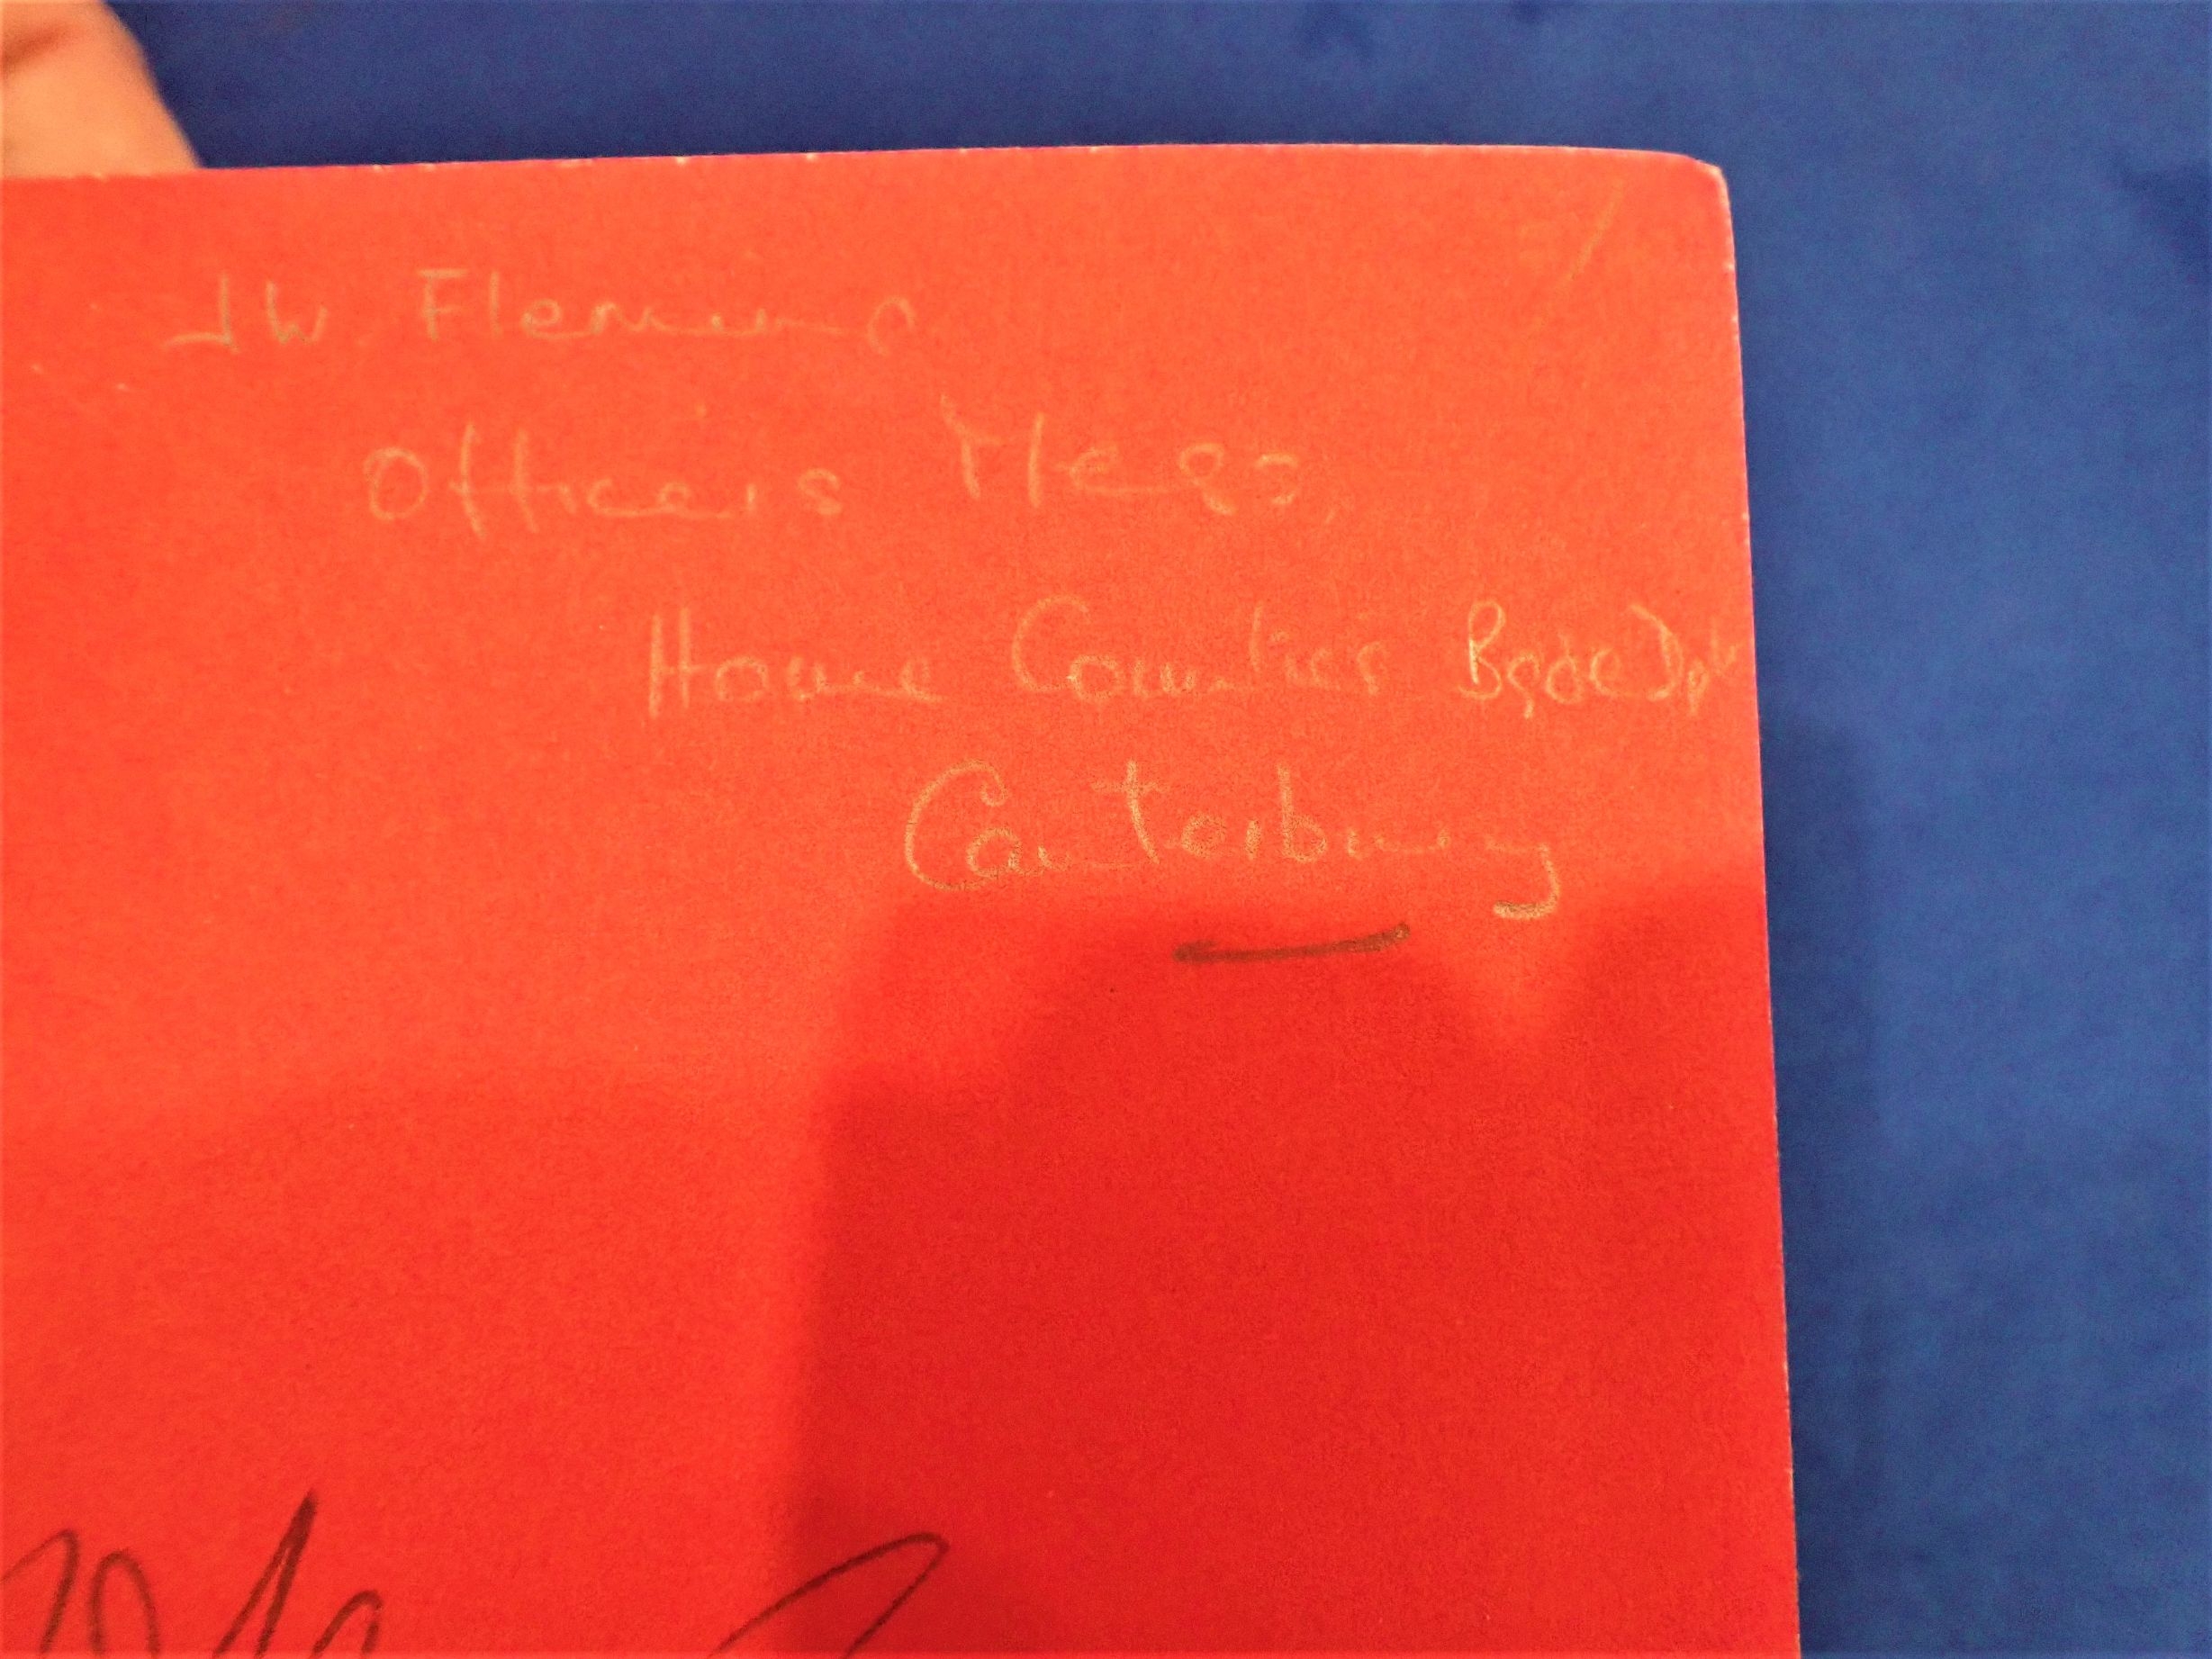 JW Fleming
Officers Mess,
Home Counties Bgde Dpt
Canterbury